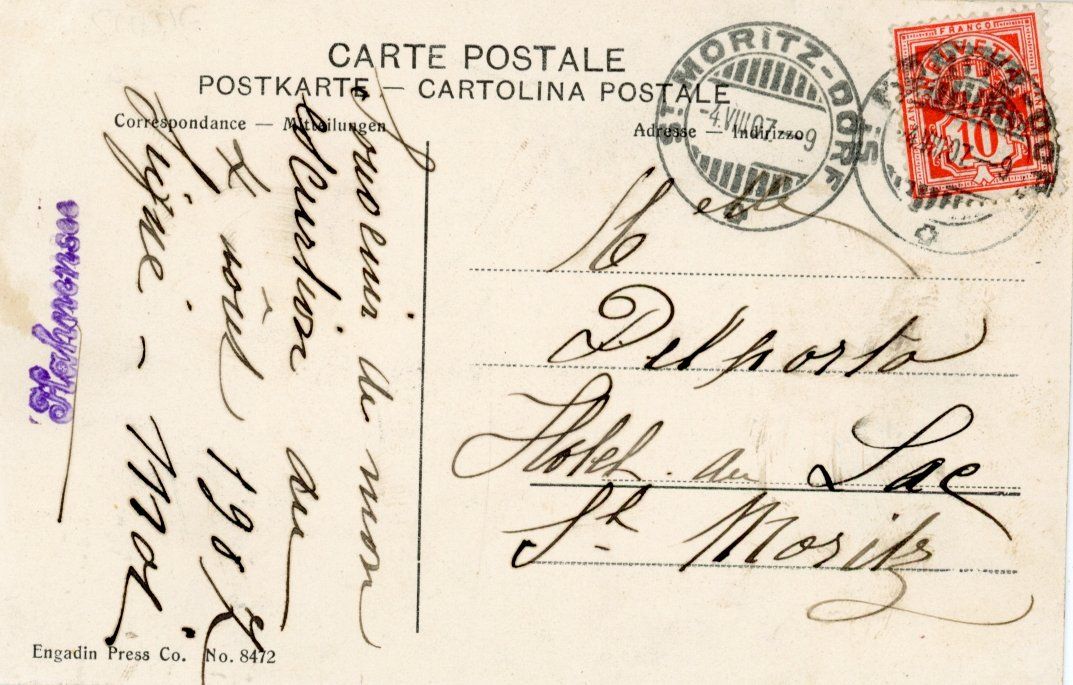 CARTE POSTALE
POSTKARTE — CARTOLINA POSTALE
Correspondance — Mitteilungen
Adresse — Indirizzo
Souvenir de mon
excursion du
août 1907
Signé - Moi
Hahnensee
Melle
Delporto
Hotel du Lac
St Moritz
ST. MORITZ-DORF
-4.VIII.07.-9
FRANCO
HELVETIA
10
Engadin Press Co. No. 8472